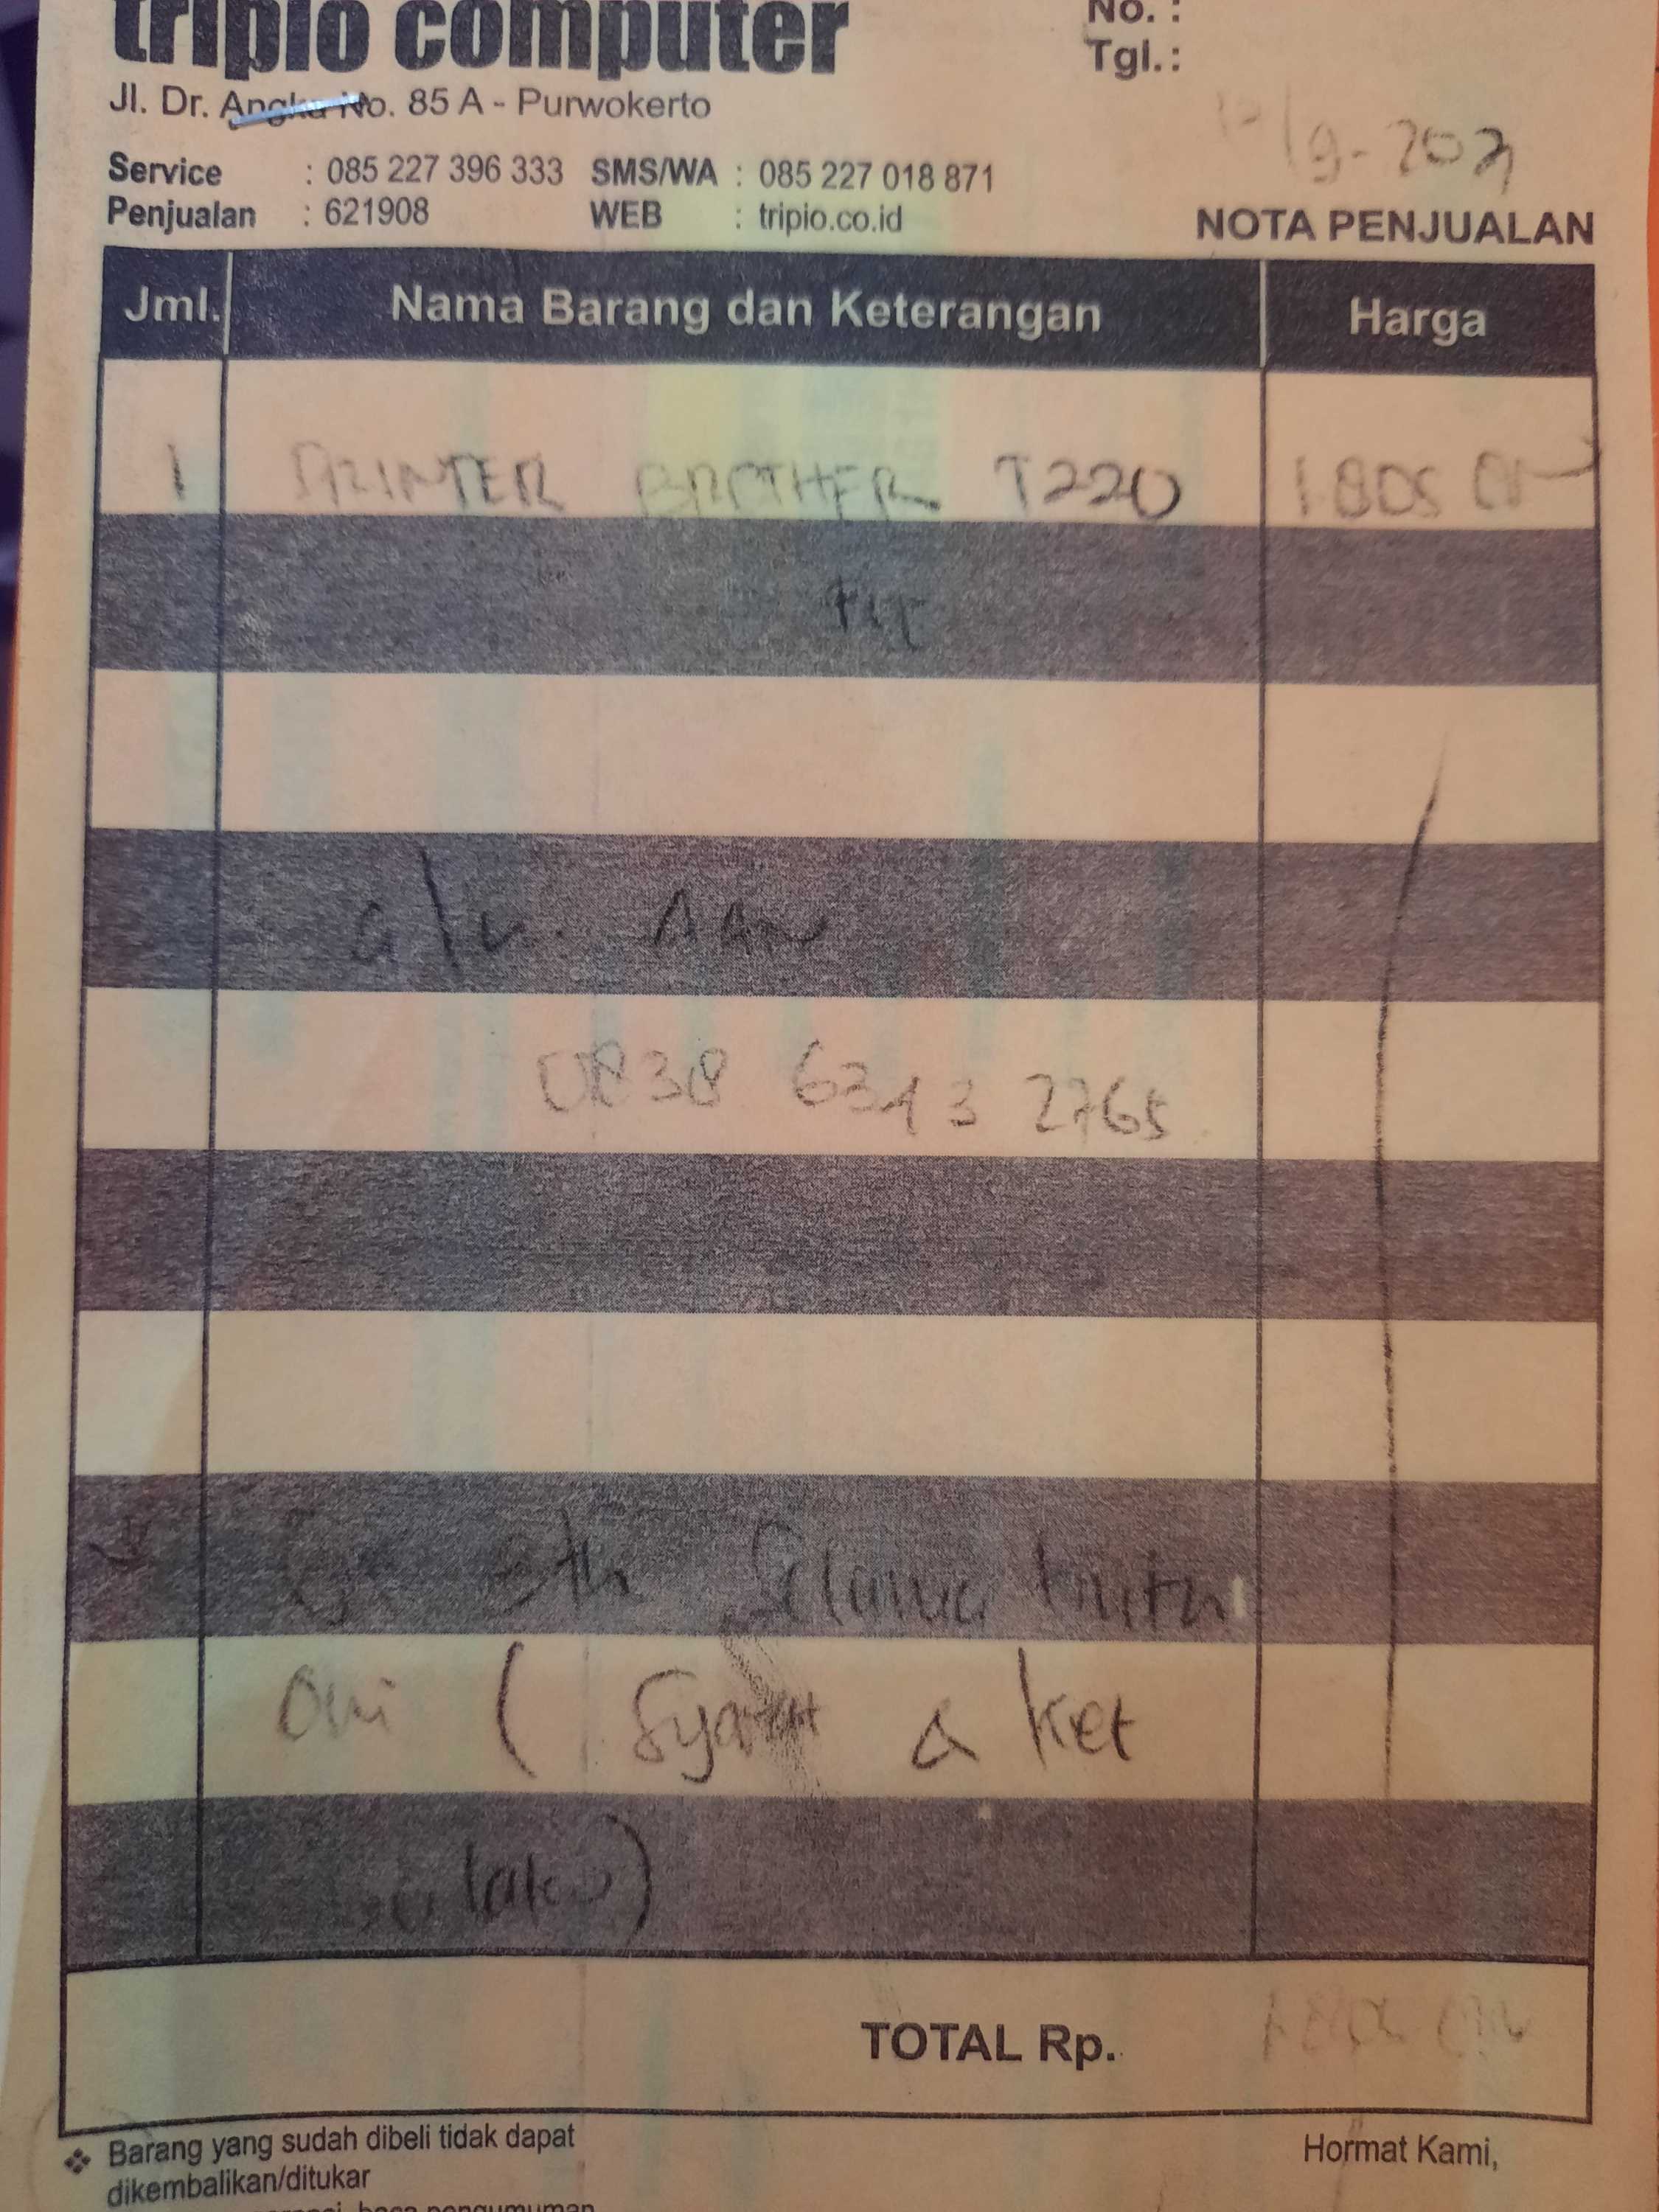 tripio computer
No. :
Tgl. :
Jl. Dr. Angka No. 85 A - Purwokerto
/9-202
Service : 085 227 396 333 SMS/WA : 085 227 018 871
Penjualan : 621908 WEB : tripio.co.id
NOTA PENJUALAN
Jml. Nama Barang dan Keterangan Harga
1 PRINTER BROTHER T220 1.805
a/n. AAN
0838 6343 2765
3th Selama tinta
Ori ( Syarat & Ket
)
TOTAL Rp.
❖ Barang yang sudah dibeli tidak dapat
dikembalikan/ditukar
Hormat Kami,